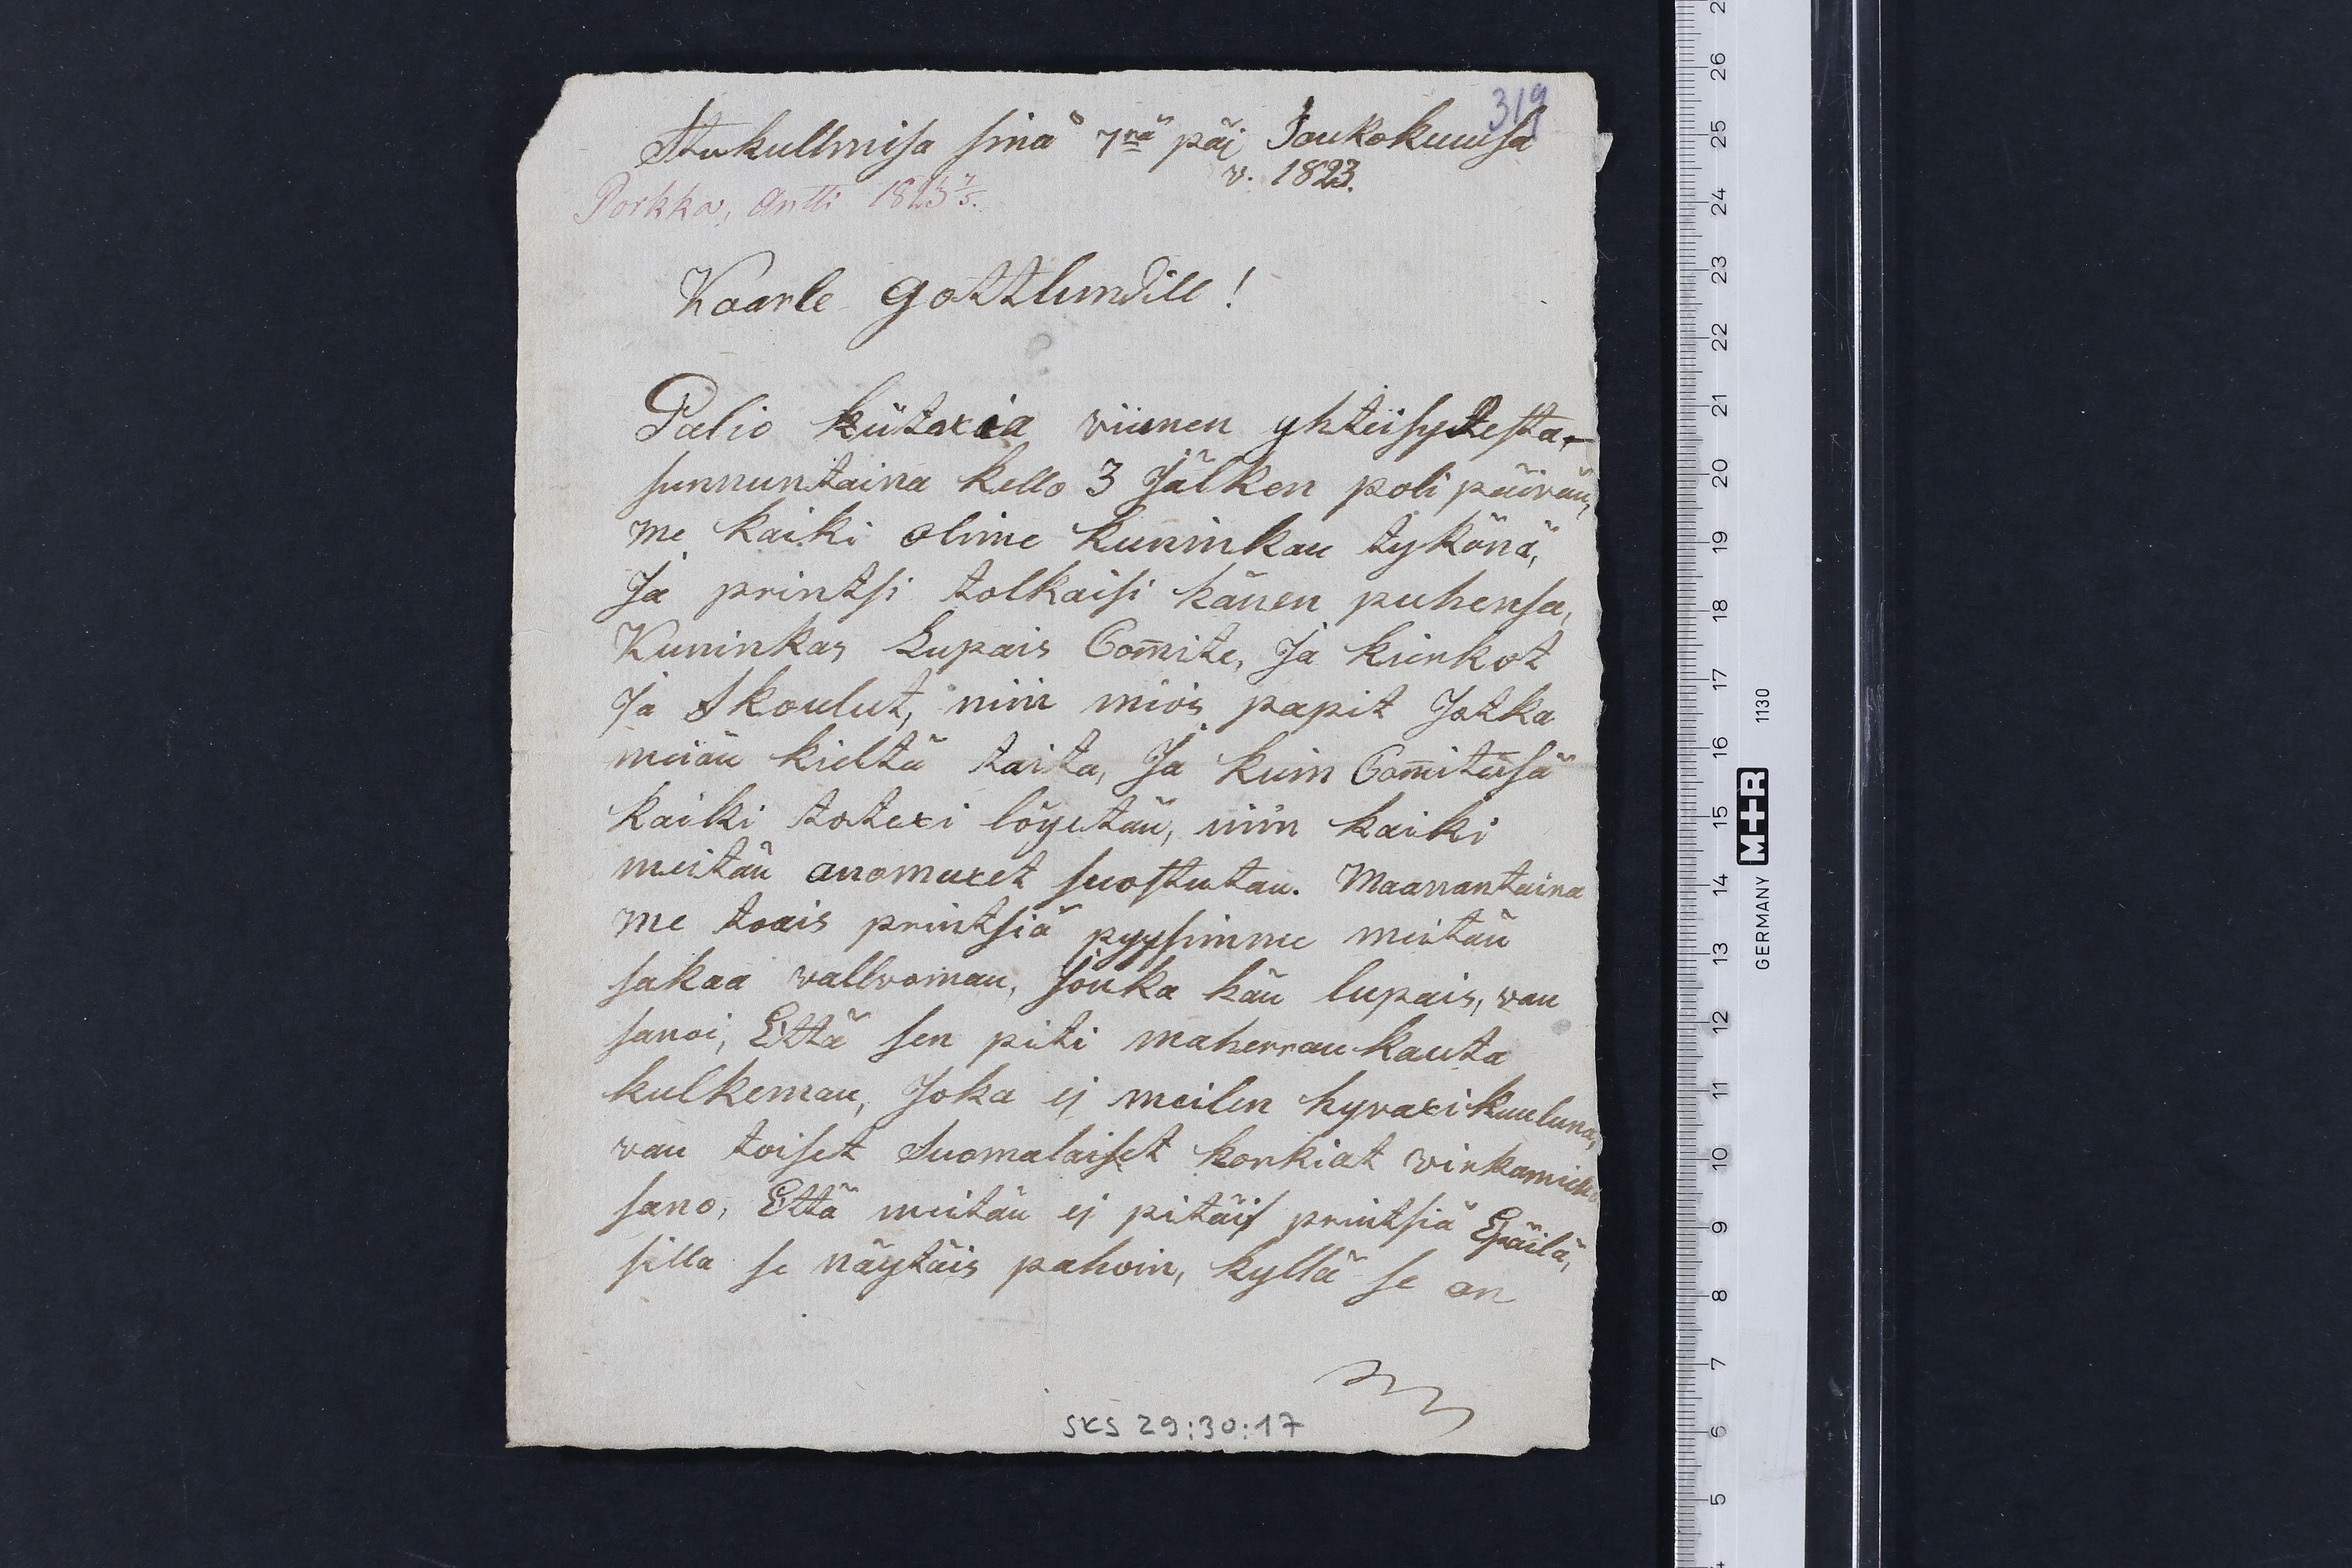 319
Stukullmisa sinä 7nä päi Toukokuusa
v. 1823.
Porkka, Antti 1823 7/5.
Kaarle Gottlundill!
Palio kiitoxia viimen yhteisydesta,
sunnuntaina kello 3 Jälken poli päivän,
me kaiki olime kuninkan tykönä,
Ja printsi tolkaisi hänen puhensa,
Kuninkas Lupais Com̄ite, Ja kirkot
Ja skoulut, niin miös papit Jotka
meiän kieltä taita, Ja kuin Com̄itiisä
kaiki totexi löyetän, niin kaiki
meitän anomuxet suostutan. Maanantaina
me toais printsiä pyysimme meitän
sakaa vallvoman, Jonka hän lupais, van
sanoi, Että sen piti maherran kauta
kulkeman, Joka ej meilen hyvaxi kuuluna,
van toiset Suomalaiset korkiat virkamiehe
sano, Että meitän ej pitäis printsiä Epäilä,
silla se näytäis pahoin, kyllä se on
SKS 29:30:17
26
25
24
23
22
21
20
19
18
17
16
15
14
13
12
11
10
9
8
7
6
5
GERMANY M+R 1130